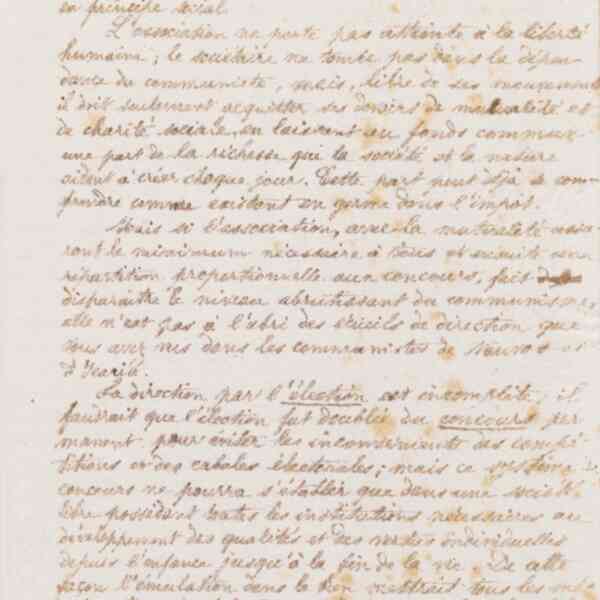 en principe social.
L'association ne porte pas atteinte à la liberté
humaine; le sociétaire ne tombe pas dans la dépen-
dance du communiste, mais, libre de ses mouvements
il doit seulement acquitter ses devoirs de mutualité et
de charité sociale, en laissant au fonds commun
une part de la richesse que la société et la nature
aident à créer chaque jour. Cette part peut déjà se com-
prendre comme existant en germe dans l'impôt.
Mais si l'association, avec la mutualité assu-
rant le minimum nécessaire à tous et ensuite une
répartition proportionnelle au concours, fait
disparaître le niveau abrutissant du communisme,
elle n'est pas à l'abri des écueils de direction que
vous avez vus dans les communistes de et
d'Icarie.
La direction par l'élection est incomplète, il
faudrait que l'élection fut doublée du concours per
manent pour éviter les inconvénients des compé-
titions et des cabales électorales; mais ce système de
concours ne pourra s'établir que dans une société
libre possédant toutes les institutions nécessaires au
développement des qualités et des vertus individuelles
depuis l'enfance jusqu'à la fin de la vie. De cette
façon l'émulation dans le bien mettrait tous les